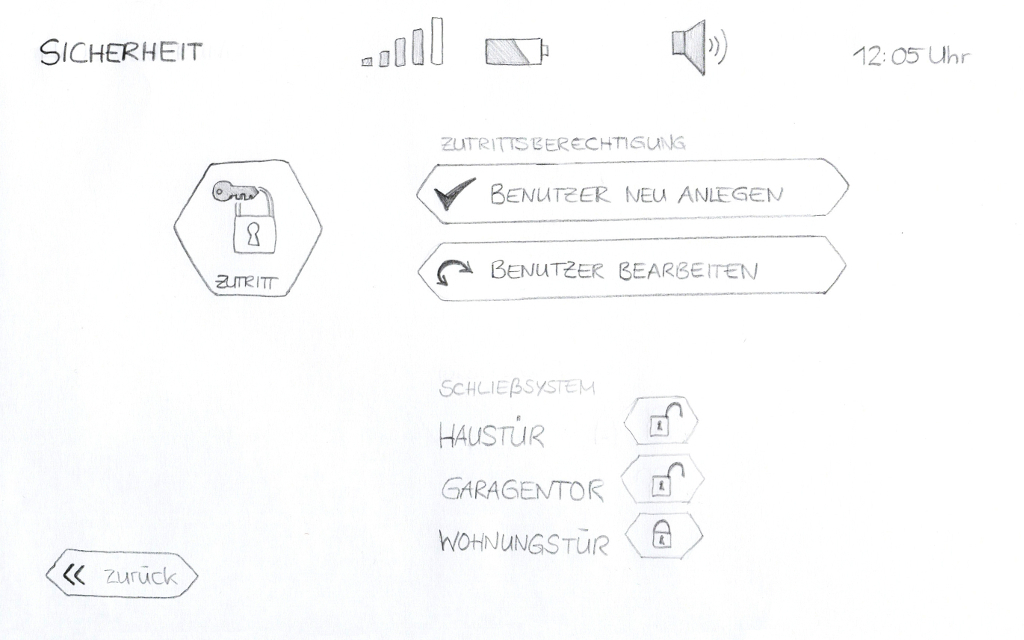 SICHERHEIT
12:05 Uhr
ZUTRITTSBERECHTIGUNG
BENUTZER NEU ANLEGEN
ZUTRITT
BENUTZER BEARBEITEN
SCHLIEßSYSTEM
HAUSTÜR
GARAGENTOR
WOHNUNGSTÜR
« zurück